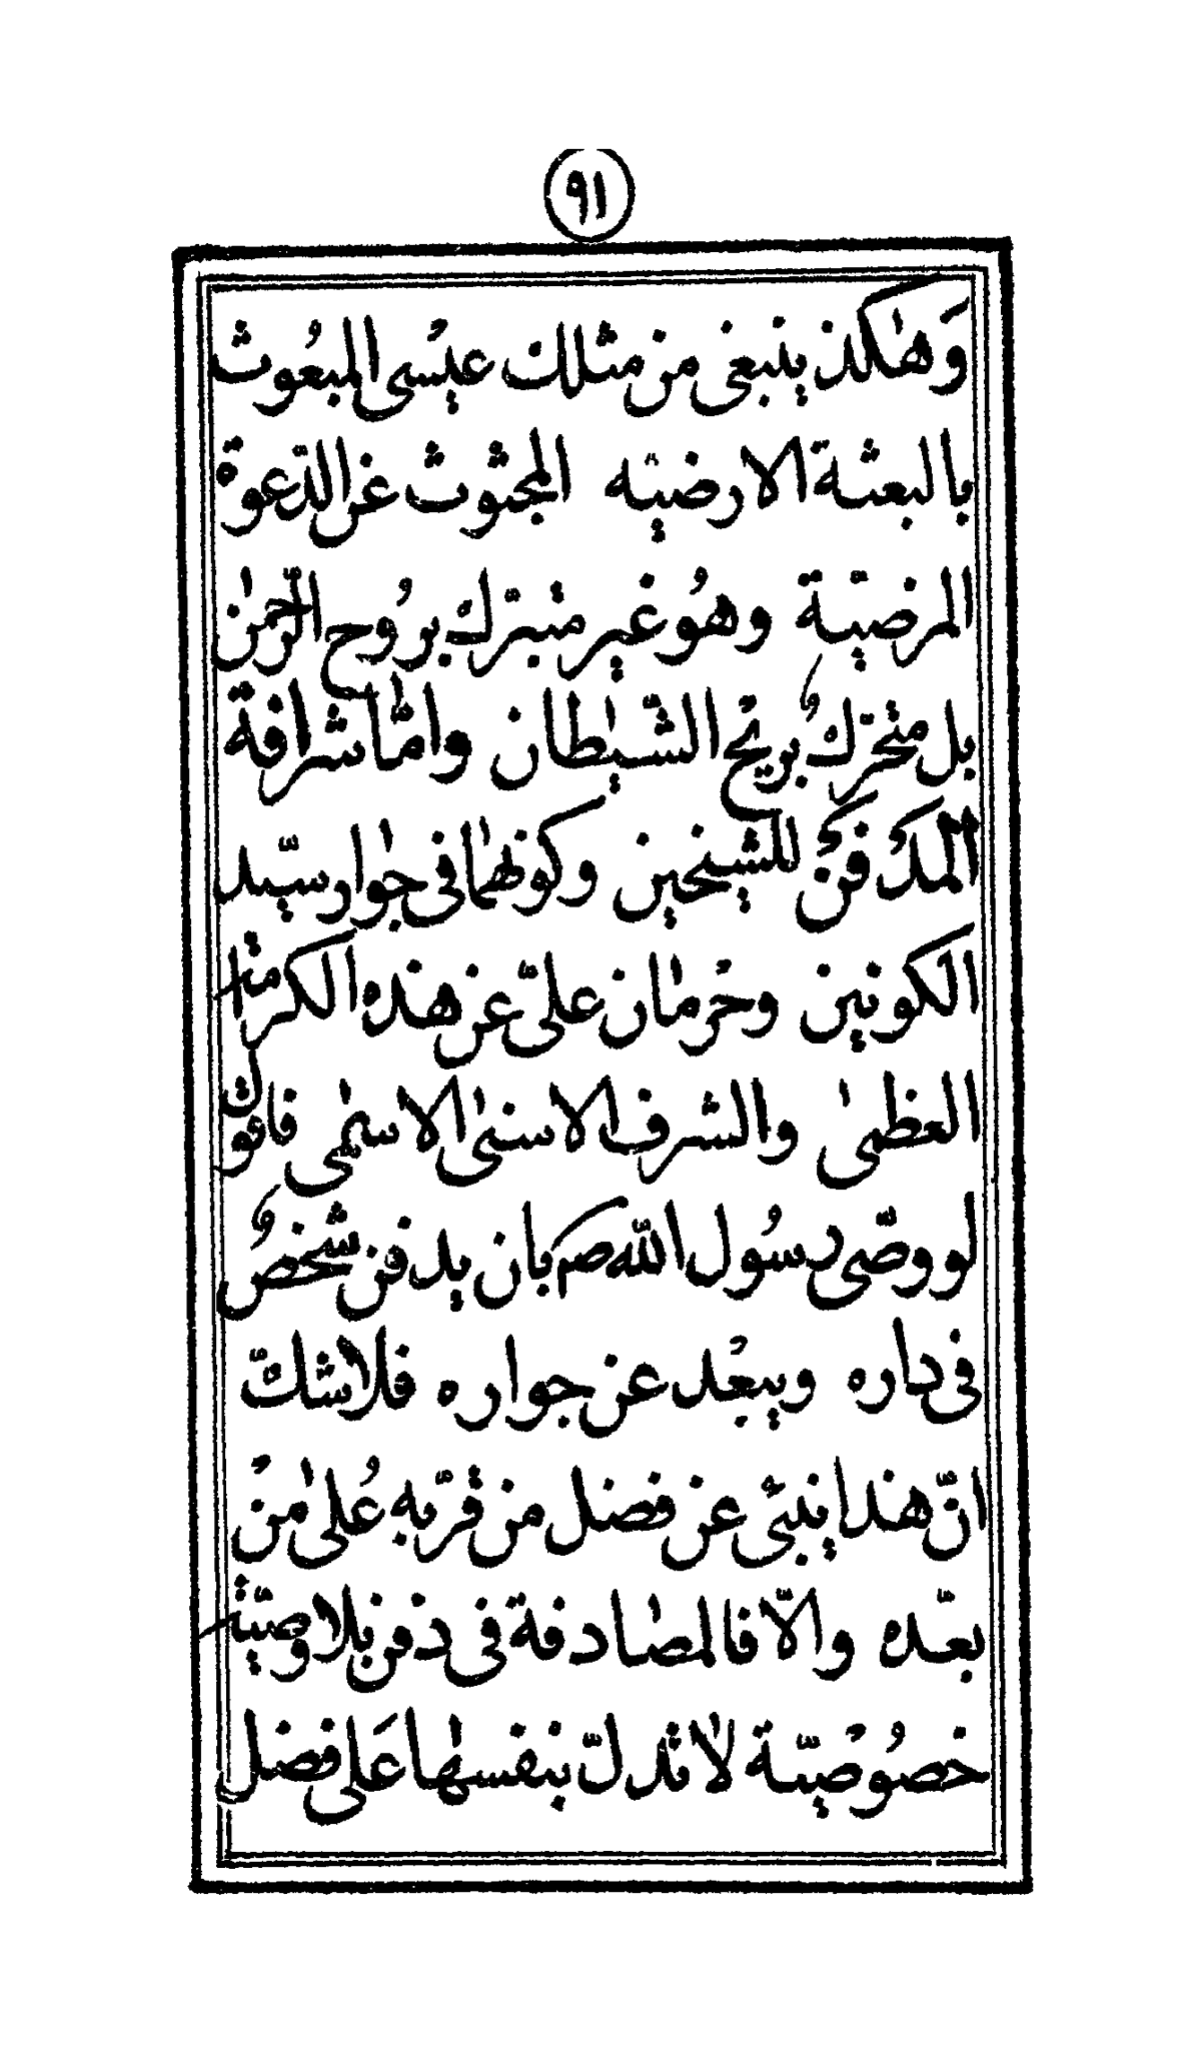 ٩١
وَهٰكذ ينبغى من مثلك عيْسى المبعُوث
بالبعثة الارضيّه المجثوث عن الدّعوة
المرضيّة وهُو غير متبرّك برُوح الرّحمٰن
بل متحرّك بريْح الشّيٰطان وامّا شرافة
المدْفَن للشيخين وكونهما فى جوار سيّد
الكونين وحرْمان علىّ عن هٰذه الكرامة
العظمٰى والشرف الاسنٰى الاسمٰى فانّه
لو وصّى رسُول الله صم بان يدفن شخصٌ
فى داره ويبعْد عن جواره فلا شكّ
انّ هٰذا ينبئ عن فضل من قرّبه عُلىٰ منْ
بعّده والّا فالمصادفة فى دفن بلا وصيّة
خصُوصيّة لا تدلّ بنفسها عَلى فضل